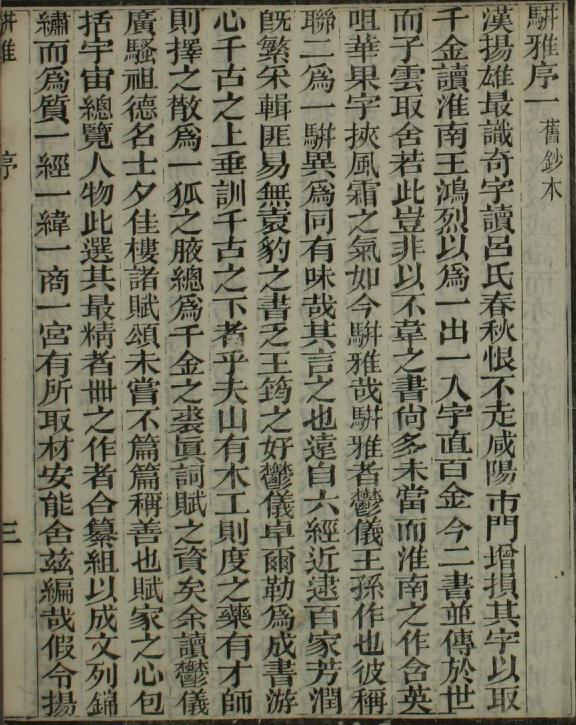 駢雅序一舊鈔本
漢揚雄最識奇字讀呂氏春秋恨不走咸陽市門增損其字以取
千金讀淮南王鴻烈以爲一出一入字直百金今二書並傳於世
而子雲取舍若此豈非以不韋之書尙多未當而淮南之作含英
咀華果字挾風霜之氣如今駢雅哉駢雅者鬱儀王孫作也彼稱
聯二爲一駢異爲同有味哉其言之也遠自六經近逮百家芳潤
旣繁采輯匪易無袁豹之書乏王筠之好鬱儀卓爾勒爲成書游
心千古之上垂訓千古之下者乎夫山有木工則度之藥有才師
則擇之散爲一狐之腋總爲千金之裘眞詞賦之資矣余讀鬱儀
廣騷祖德名士夕佳樓諸賦頌未嘗不篇篇稱善也賦家之心包
括宇宙總覽人物此選其最精者卌之作者合纂組以成文列錦
繡而爲質一經一緯一商一宮有所取材安能舍茲編哉假令揚
駢雅 序 三